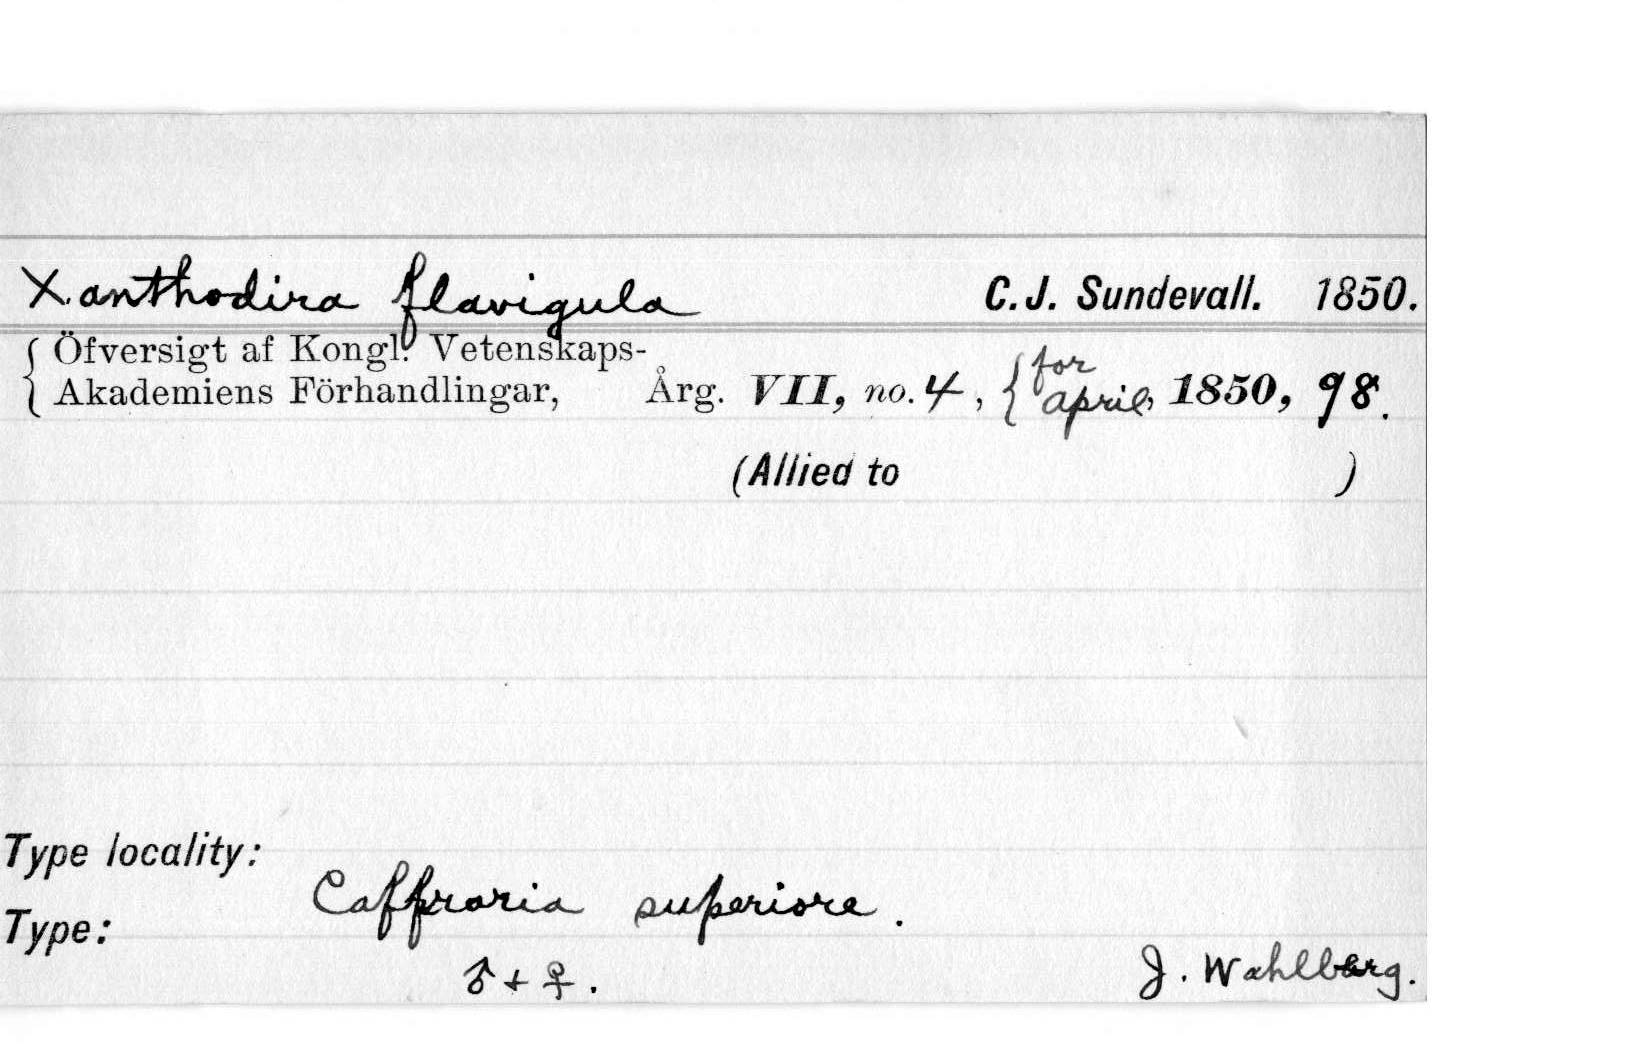 Xanthodira flavigula C.J. Sundevall. 1850.
{ Öfversigt af Kongl. Vetenskaps-
Akademiens Förhandlingar, Årg. VII, no. 4, { for april, 1850, 98.
(Allied to )
Type locality:
Caffraria superiore.
Type:
♂ + ♀. J. Wahlberg.